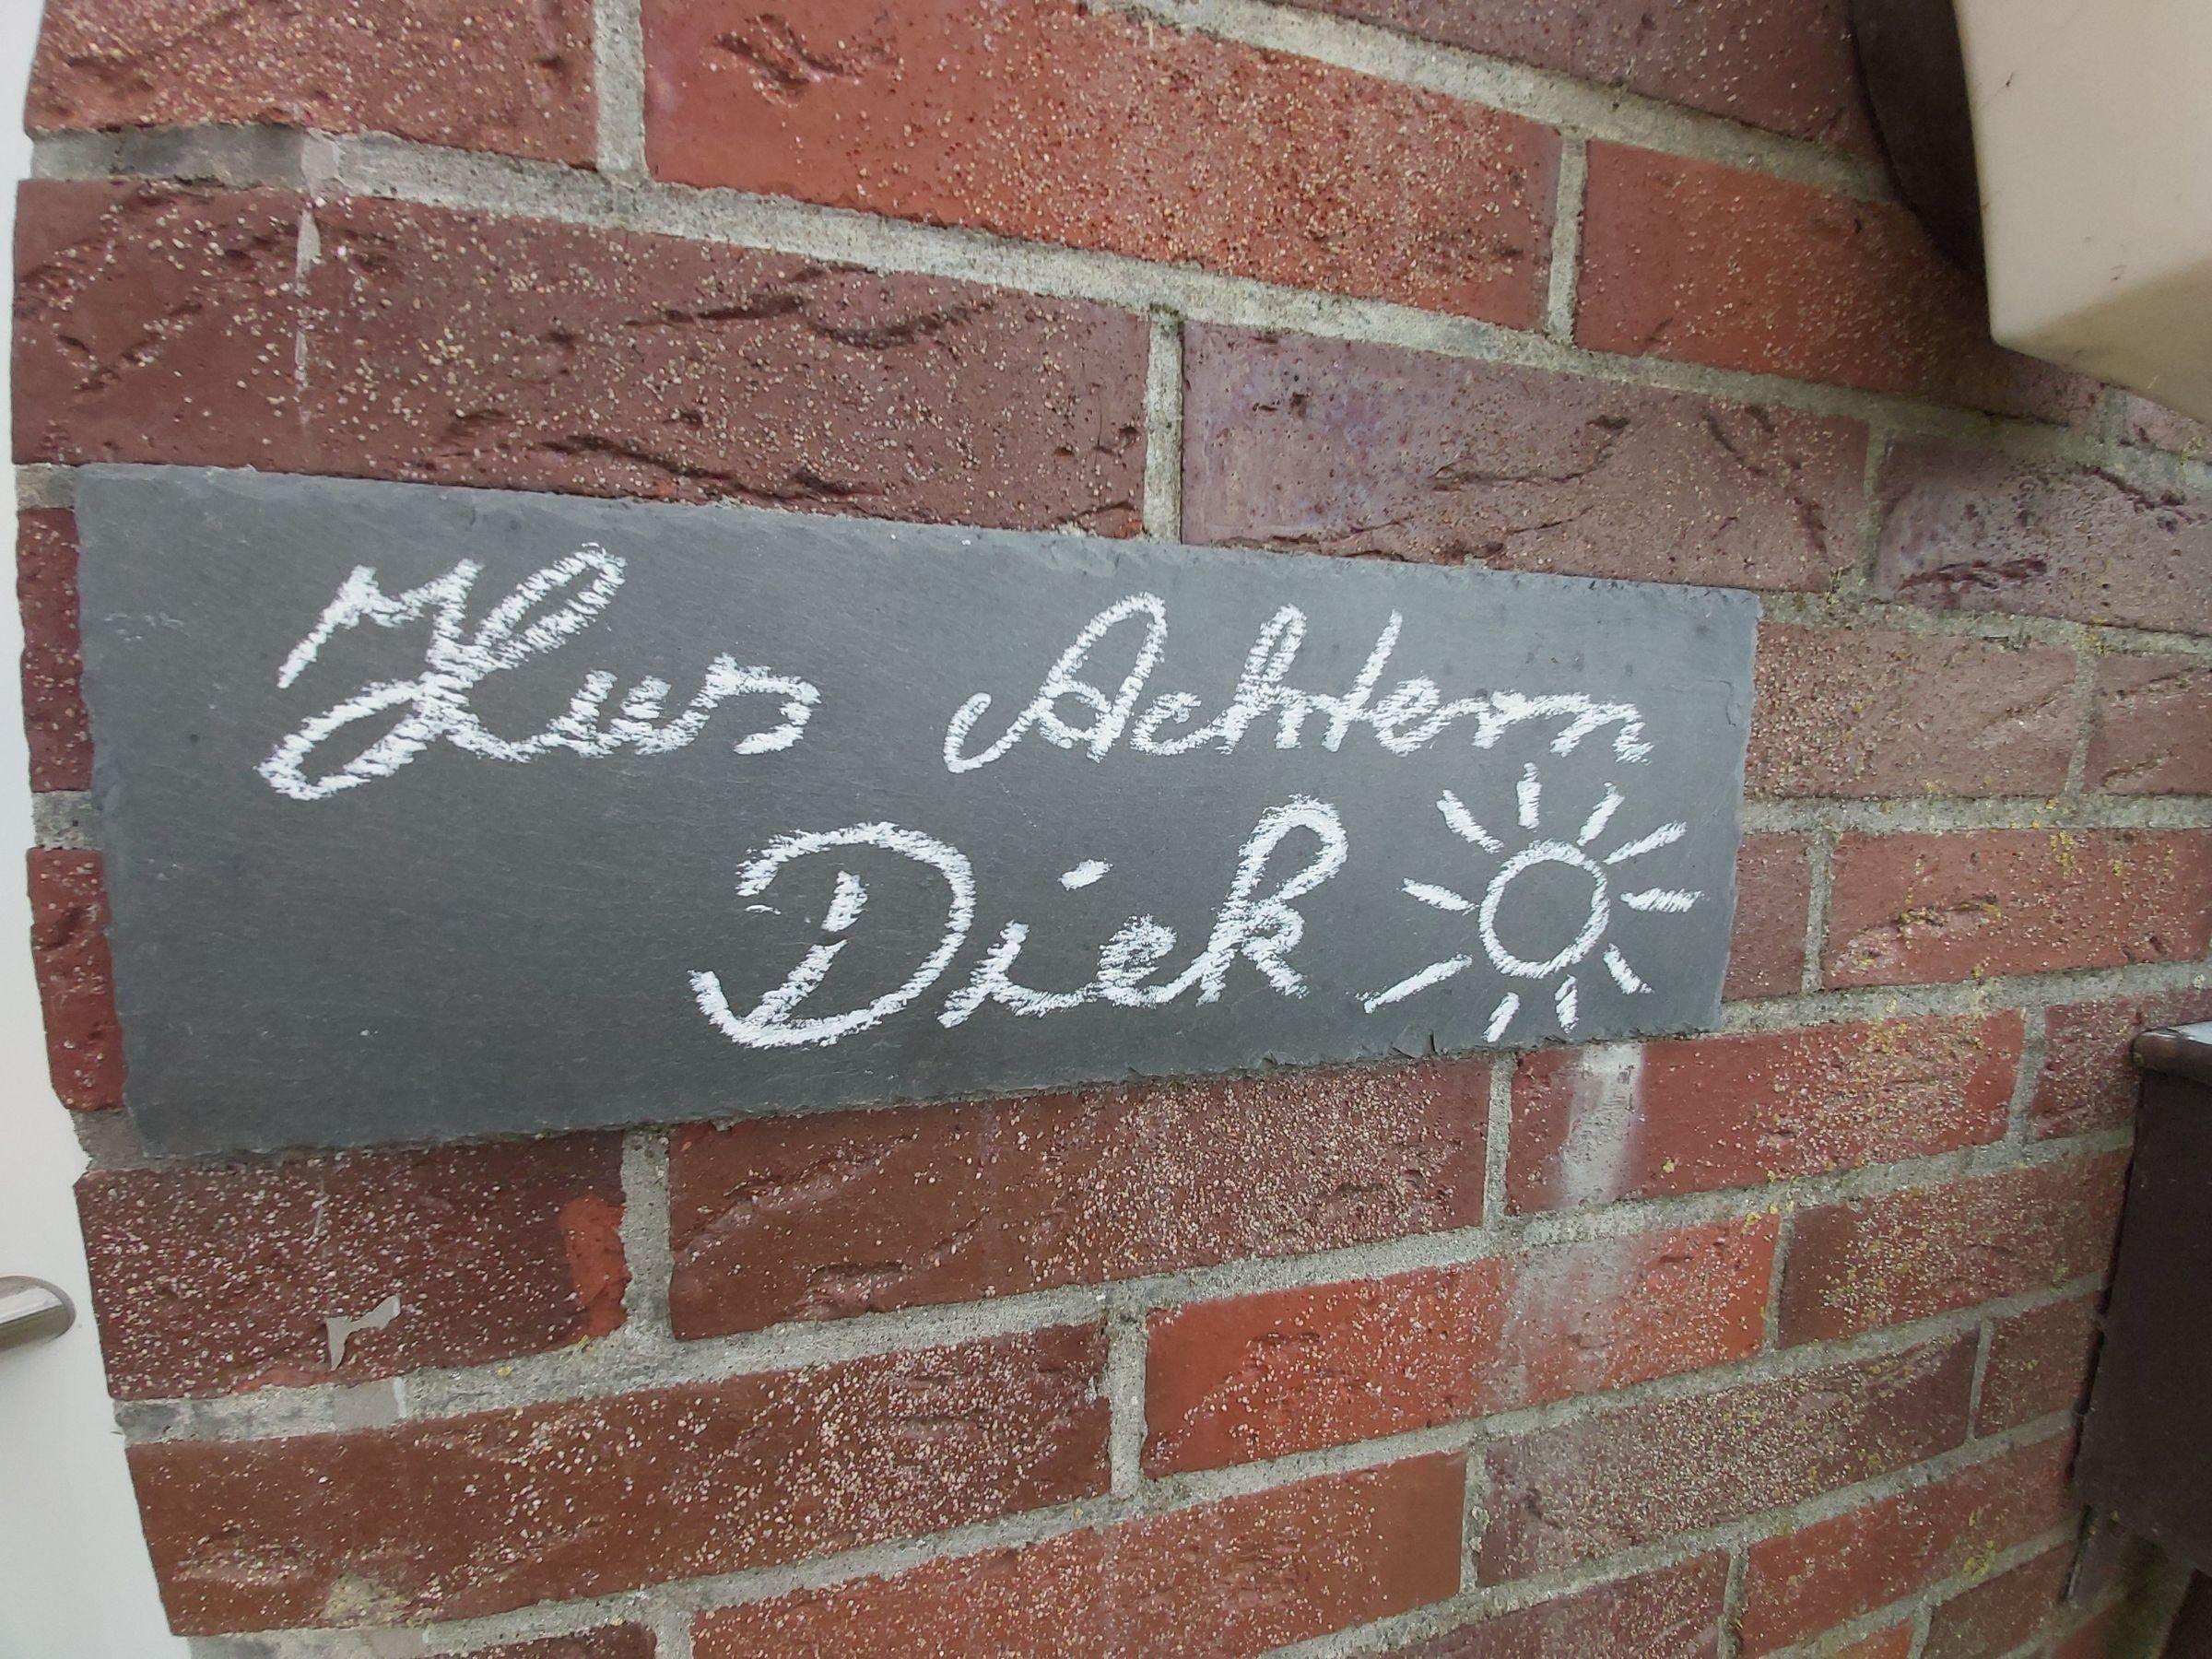 Hus Achtern
Diek